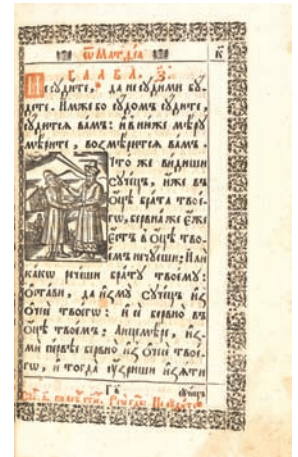 Ѿ Матѳе́а к҃
ГЛАВА̀, з҃.
Не сꙋди́те, да не сꙋди́ми бꙋ́
дете. И҆мже бо сꙋдо́мъ сꙋ́дите,
сꙋ́дитсѧ ва́мъ: и҆ въ ню́же мѣ́рꙋ
мѣ́рите, возмѣ́ритсѧ ва́мъ.
Что́ же ви́диши
сꙋче́цъ, и҆́же въ
ѻ҆́цѣ бра́та твое
гѡ̀, бервна́ же є҆́же
є҆́сть в ѻ҆́цѣ тво
е́мъ не чꙋ́еши; И҆лѝ
ка́кѡ рече́ши бра́тꙋ твоемꙋ̀:
ѻ҆ста́ви, да и҆змꙋ̀ сꙋче́цъ и҆з
ѻ҆чесѐ твоегѡ̀: и҆ сѐ бервно̀ въ
ѻ҆́цѣ твое́мъ: Лицемѣ́ре, и҆з
мѝ пе́рвѣе бервно̀ и҆з ѻ҆чесѐ твое
гѡ̀, и҆ тогда̀ ᲂу҆́зриши и҆з̾ѧ́ти
сꙋче́цъ